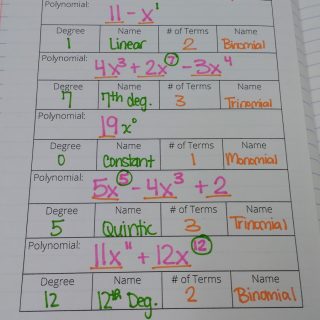 Polynomial: 11 - x¹
Degree Name # of Terms Name
1 Linear 2 Binomial
Polynomial: 4x³ + 2x⁷ - 3x⁴
Degree Name # of Terms Name
7 7th deg. 3 Trinomial
Polynomial: 19x⁰
Degree Name # of Terms Name
0 Constant 1 Monomial
Polynomial: 5x⁵ - 4x³ + 2
Degree Name # of Terms Name
5 Quintic 3 Trinomial
Polynomial: 11x¹¹ + 12x¹²
Degree Name # of Terms Name
12 12th Deg. 2 Binomial